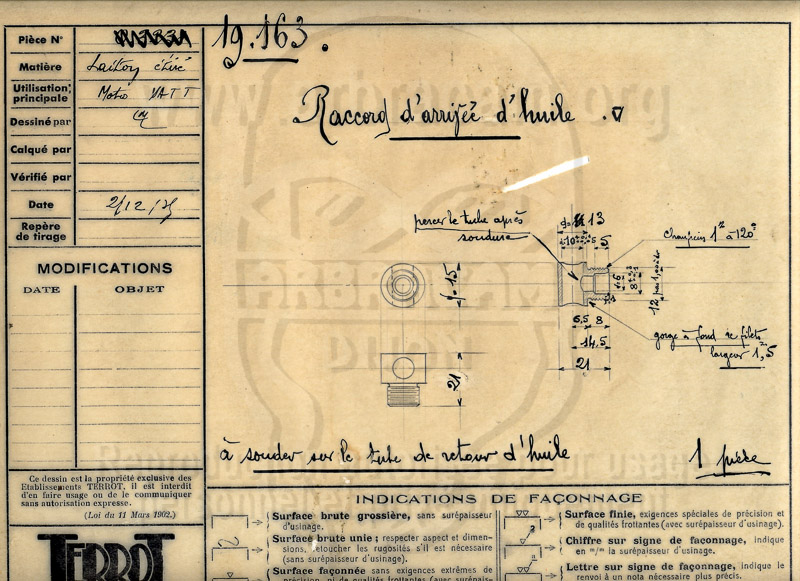 Pièce N°
19.163.
Matière
Laiton étiré
Utilisation principale
Moto VATT
Dessiné par
Calqué par
Vérifié par
Date
2/12/35
Repère de tirage
MODIFICATIONS
DATE OBJET
Raccord d'arrivée d'huile
percer le tube après
soudure
13
10
5
Chanfrein 1 à 120°
6
8
12
6,5 8
14,5
21
gorge à fond de filets
largeur 1,5
15
21
à souder sur le tube de retour d'huile
1 pièce
www.arbracam.org
ARBRACAM
DIJON
Ce dessin est la propriété exclusive des
Etablissements TERROT. il est interdit
d'en faire usage ou de le communiquer
sans autorisation expresse.
(Loi du 11 Mars 1902.)
TERROT
INDICATIONS DE FAÇONNAGE
Surface brute grossière, sans surépaisseur
d'usinage.
Surface brute unie ; respecter aspect et dimen-
sions, retoucher les rugosités s'il est nécessaire
(sans surépaisseur d'usinage).
Surface façonnée sans exigences extrêmes de
précision, ni de qualités frottantes (avec surépais-
Surface finie, exigences spéciales de précision et
de qualités frottantes (avec surépaisseur d'usinage).
Chiffre sur signe de façonnage, indique
en m/m la surépaisseur d'usinage.
Lettre sur signe de façonnage, indique le
renvoi à un nota nécessaire plus précis.